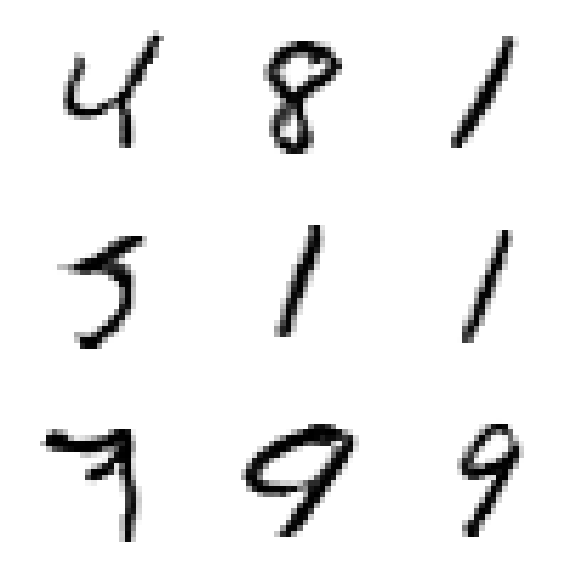 4 8 1
5 1 1
7 9 9